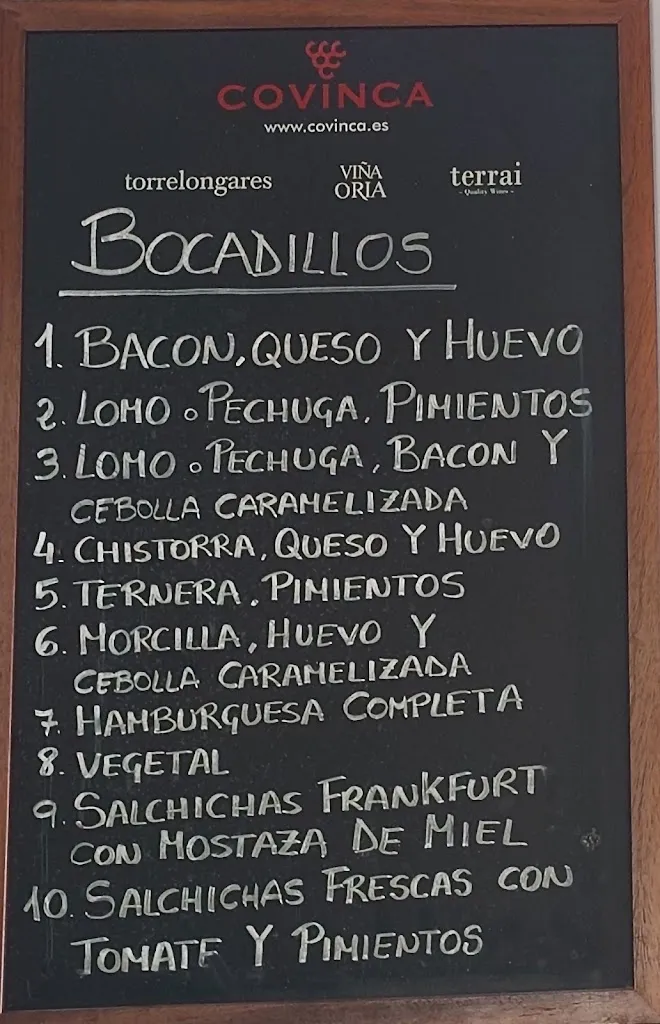 COVINCA
www.covinca.es
torrelongares VIÑA ORIA terrai
- Quality Wines -
BOCADILLOS
1. BACON, QUESO Y HUEVO
2. LOMO o PECHUGA, PIMIENTOS
3. LOMO o PECHUGA, BACON Y
CEBOLLA CARAMELIZADA
4. CHISTORRA, QUESO Y HUEVO
5. TERNERA, PIMIENTOS
6. MORCILLA, HUEVO Y
CEBOLLA CARAMELIZADA
7. HAMBURGUESA COMPLETA
8. VEGETAL
9. SALCHICHAS FRANKFURT
CON MOSTAZA DE MIEL
10. SALCHICHAS FRESCAS CON
TOMATE Y PIMIENTOS